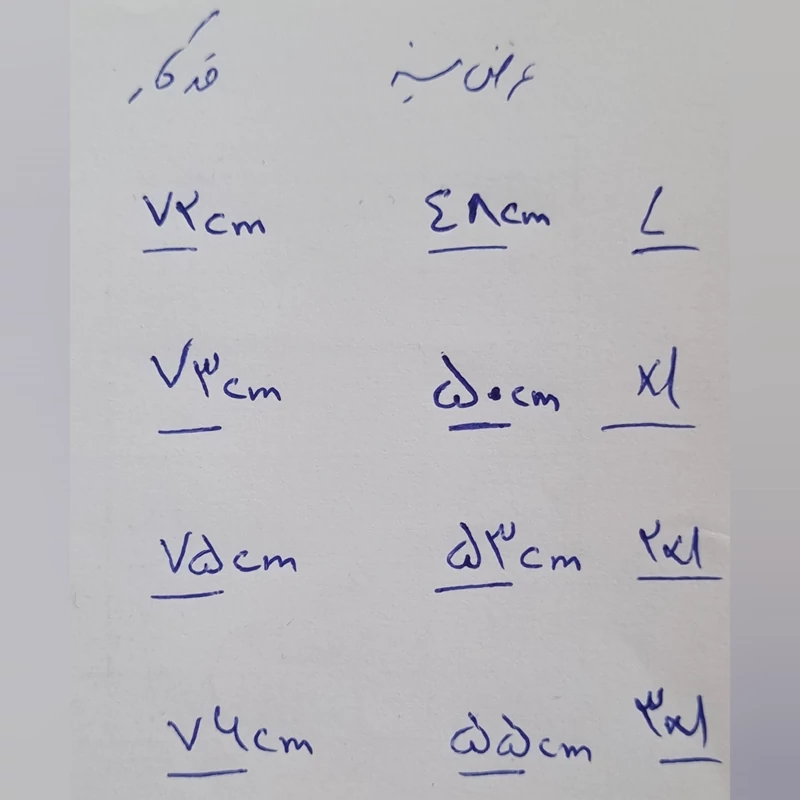 عرض سینه قد کار
L ٤٨cm ۷۲cm
xl ۵۰cm ۷۳cm
۲xl ۵۳cm ۷۵cm
۳xl ۵۵cm ۷۶cm